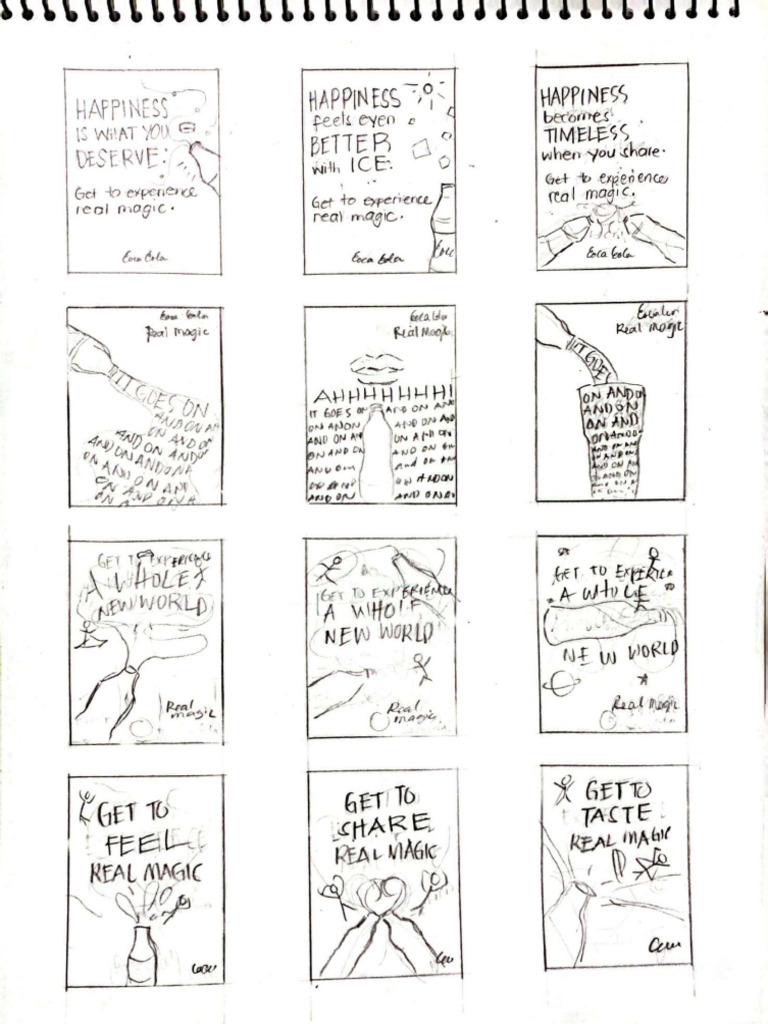 HAPPINESS
IS WHAT YOU
DESERVE.
Get to experience
real magic.
Coca Cola
HAPPINESS
feels even
BETTER
with ICE.
Get to experience
real magic.
Coca Cola
HAPPINESS
becomes
TIMELESS
when you share.
Get to experience
real magic.
Coca Cola
Coca Cola
Real Magic
IT GOES ON
ON AND ON AN
AND ON ON AND ON
AND ON AND
AND ON AND ON
ON AND ON AND
ON AND ON A
AND ON
Coca Cola
Real Magic
AHHHHHHH!
IT GOES ON AND ON AND
ON AND ON AND ON AND
AND ON AN ON AND ON
ON AND ON AND ON
AND ON and on an
ON AND ON
AND ON AND ON
Real Magic
IT GOES
ON AND
AND ON
ON AND
ON AND
AND ON
GET TO EXPERIENCE
A WHOLE
NEW WORLD
Real
magic
GET TO EXPERIENCE
A WHOLE
NEW WORLD
Real
magic.
GET TO EXPERIE
A WHOLE
NEW WORLD
Real Magic
GET TO
FEEL
REAL MAGIC
GET TO
SHARE
REAL MAGIC
GET TO
TASTE
REAL MAGIC